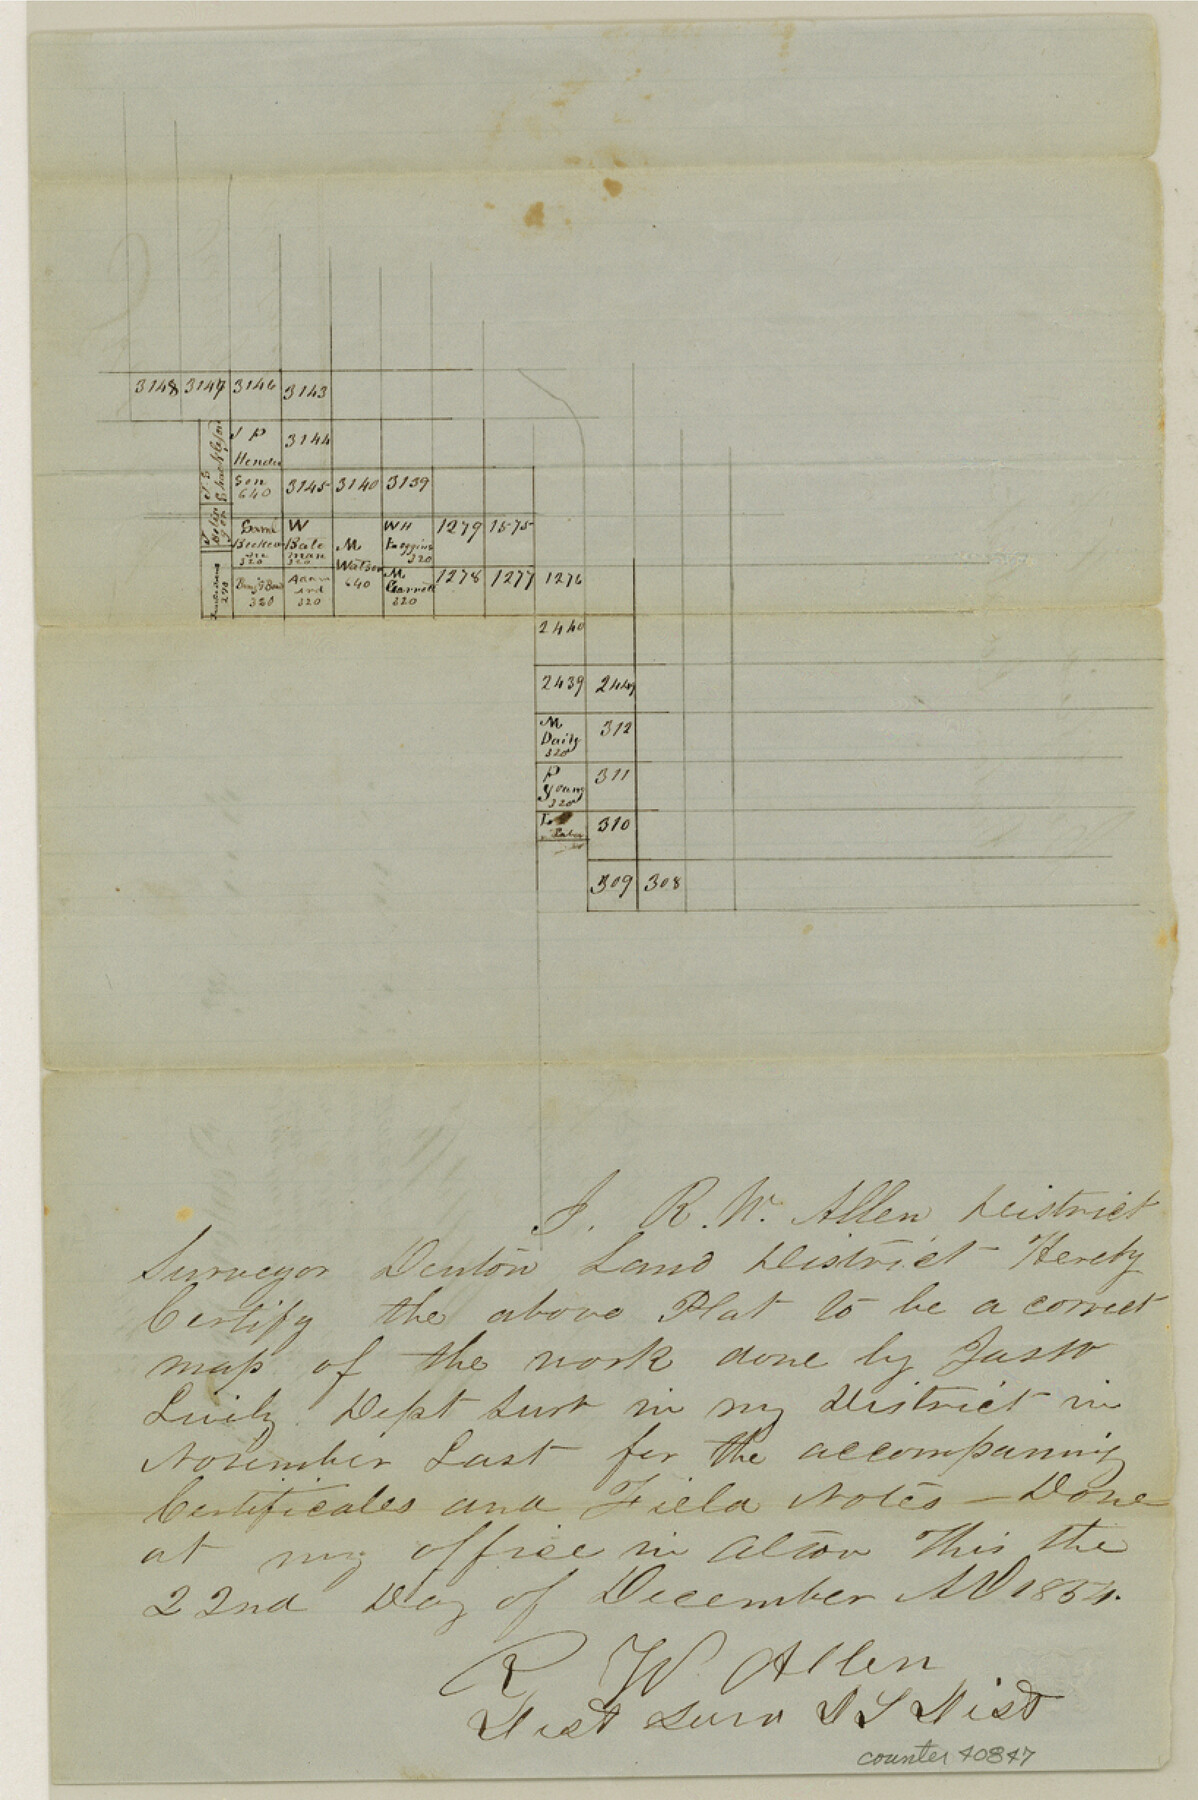 3148 3147 3146 3143
J P 3144
Hender
son 3145 3140 3139
640
W WH 1279 1575
Bate M
man 320
320 320
Watson M 1278 1277 1276
640 Garrett
320 320 320
2440
2439 2449
M 312
Daily
320
P 311
Young
320
310
309 308
I. R. W. Allen District
Surveyor Denton Land District Hereby
Certify the above Plat to be a correct
map of the work done by
Lively Dept Surv in my District in
November Last for the accompaning
Certificates and Field Notes — Done
at my office in Alton This the
22nd Day of December AD 1854.
R W Allen
Dist Surv D L Dist
counter 40847